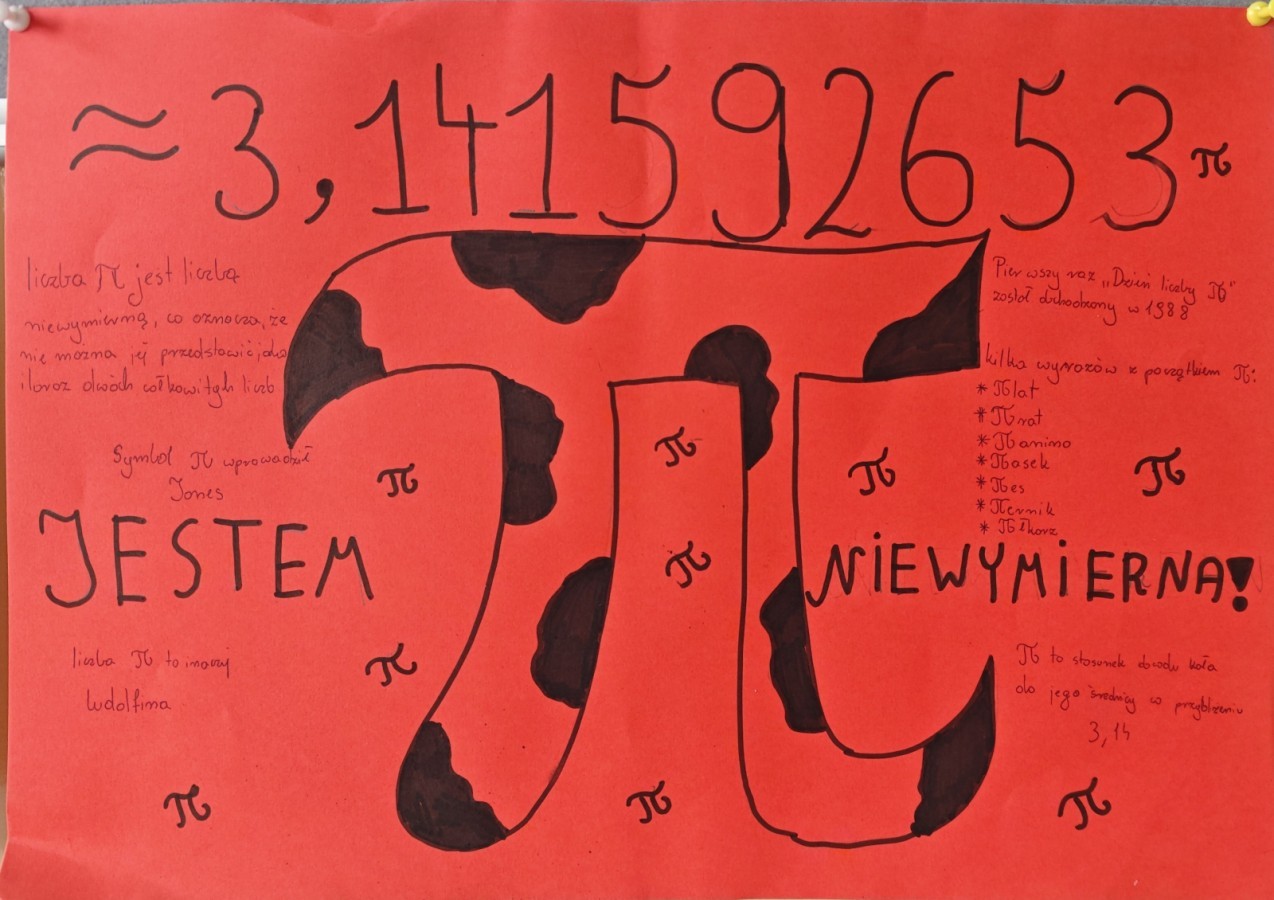 ≈ 3,141592653 π
liczba π jest liczbą
niewymierną, co oznacza, że
nie można jej przedstawić jako
iloraz dwóch całkowitych liczb
Symbol π wprowadził
Jones
Pierwszy raz „Dzień liczby π"
został obchodzony w 1988
kilka wyrazów z początkiem π:
* πlat
* πrat
* πanino
* πasek
* πes
* πernik
* πłkarz
π
π
π
π
JESTEM
NiEWYMiERNA!
π
π
liczba π to inaczej
ludolfina
π to stosunek obwodu koła
do jego średnicy w przybliżeniu
3,14
π
π
π